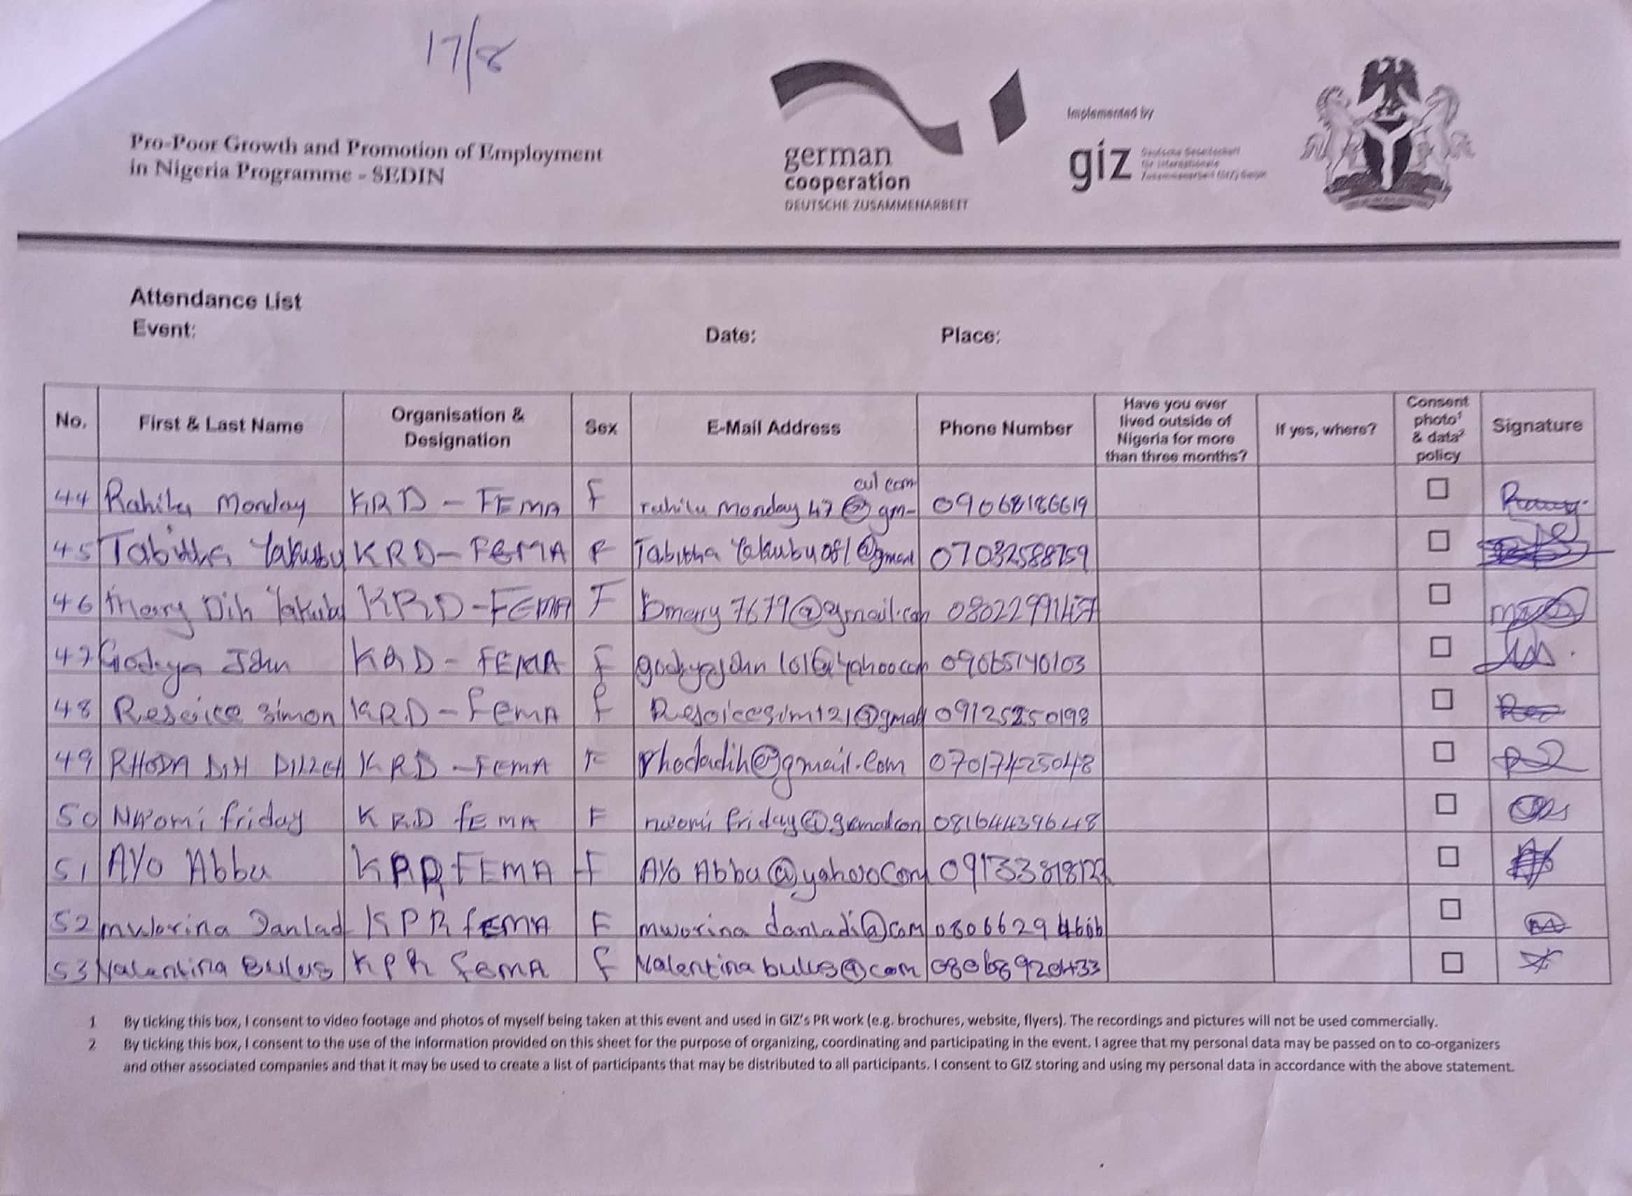 17/8
Pro-Poor Growth and Promotion of Employment
in Nigeria Programme - SEDIN
german
cooperation
DEUTSCHE ZUSAMMENARBEIT
Implemented by
giz Deutsche Gesellschaft
für Internationale
Zusammenarbeit (GIZ) GmbH
Attendance List
Event: Date: Place:
No. First & Last Name Organisation & Designation Sex E-Mail Address Phone Number Have you ever lived outside of Nigeria for more than three months? If yes, where? Consent photo¹ & data² policy Signature
44 Rahilu Monday KRD - FEMA F rahilu monday 47@gm- 09068186619
45 Tabitha Yakubu KRD-FEMA F Tabitha Yakubu081@gmail 07032588759
46 Mary Dih Yakubu KRD-FEMA F Dmary7679@gmail.com
47 Godiya John KRD - FEMA F godiyajohn101@yahoocom 09065140103
48 Resoice Simon KRD - Fema F Resoicesim121@gmail 09125250198
49 RHODA DIH KRD - Fema F rhodadih@gmail.com 07017425048
50 Nwomi friday KRD fEMA F nwomi friday@gmailcom 08164439648
51 AYO Abbu FEMA F AYO Abbu@yahoocom
52 Danladi KPR fEMA F mworina danladi@com
53 Valentina Bulus KPR fEMA F Valentina bulus@com 08068920433
1 By ticking this box, I consent to video footage and photos of myself being taken at this event and used in GIZ's PR work (e.g. brochures, website, flyers). The recordings and pictures will not be used commercially.
2 By ticking this box, I consent to the use of the information provided on this sheet for the purpose of organizing, coordinating and participating in the event. I agree that my personal data may be passed on to co-organizers
and other associated companies and that it may be used to create a list of participants that may be distributed to all participants. I consent to GIZ storing and using my personal data in accordance with the above statement.